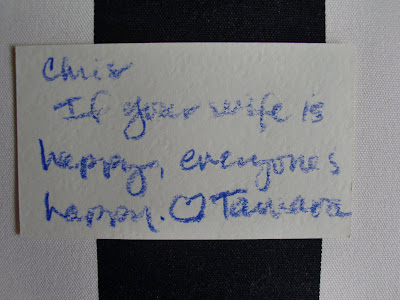 Chris
If your wife is
happy, everyone's
happy. ♡ Tamara